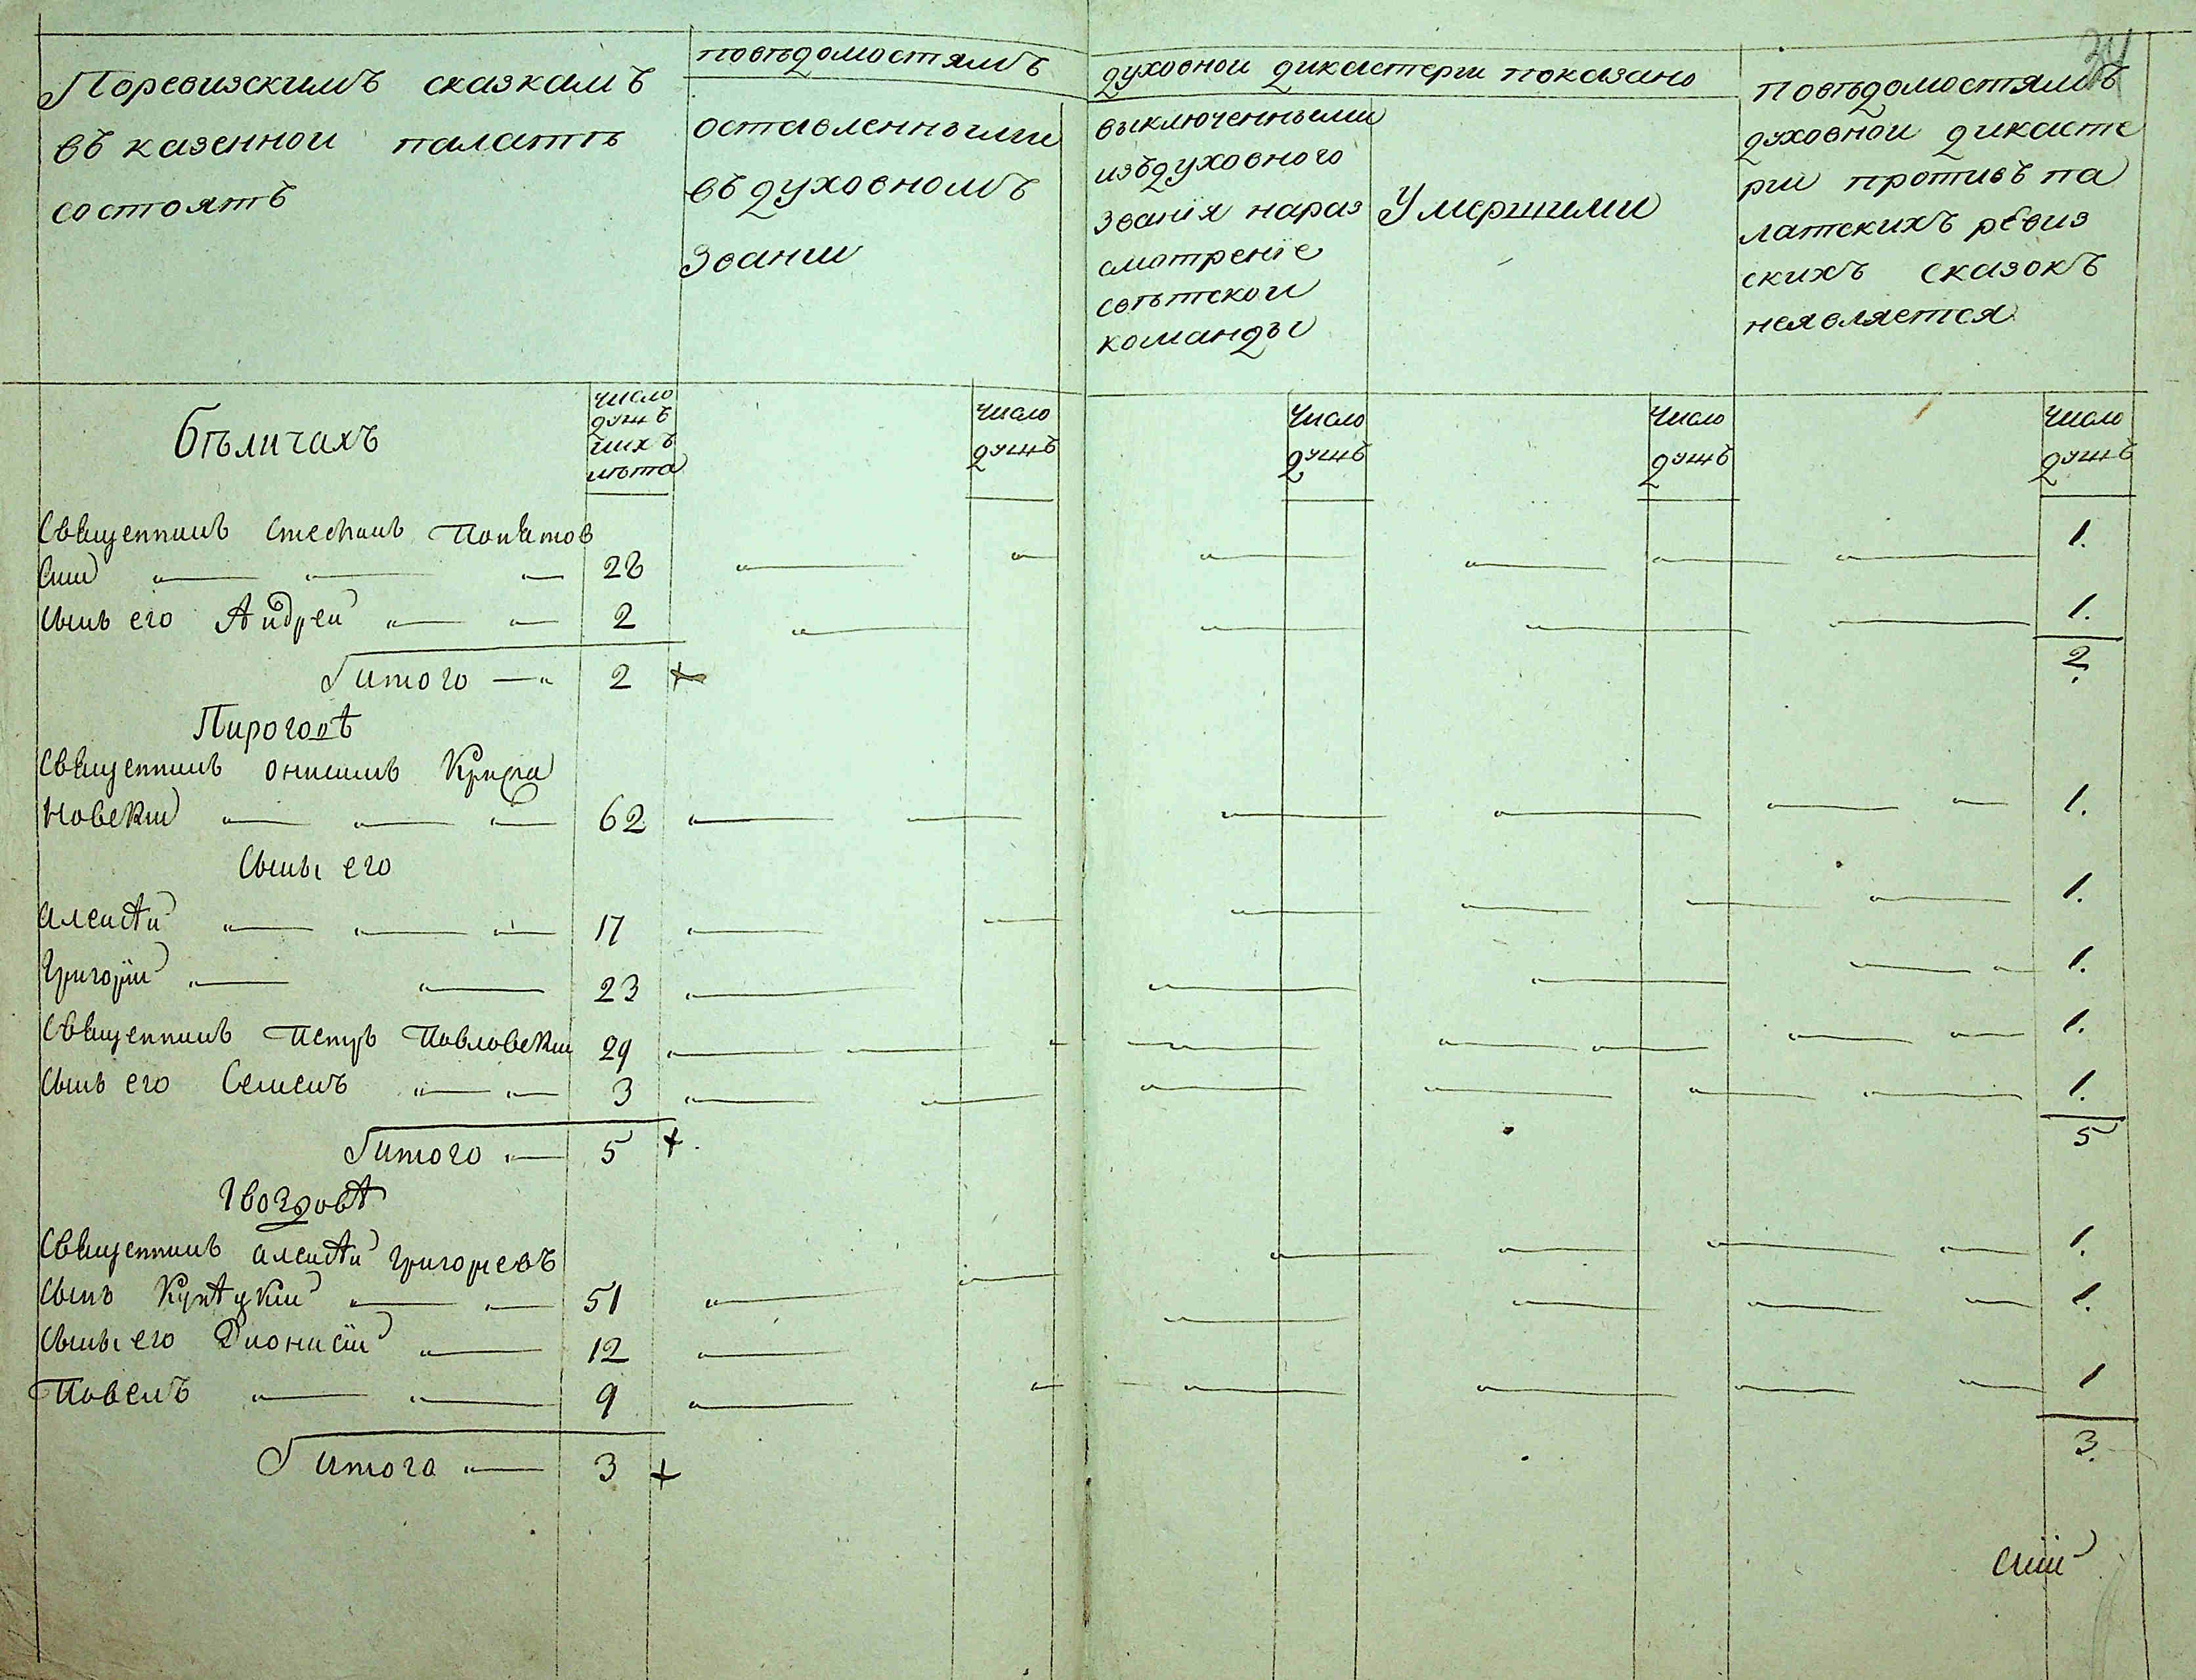 34
Поревизскимъ сказкамъ
въ казеннои палатѣ
состоятъ
повѣдомостямъ
духовнои дикастерги показано
оставленными
въ духовномъ
звании
выключенными
изъдуховного
званїя нараз
смотренїе
свѣтскои
команды
Умершими
повѣдомостямъ
духовнои дикасте
рги противъ па
латскихъ ревиз
скихъ сказокъ
неявляется
число
душъ
ихъ
лѣта
число
душъ
число
душъ
число
душъ
число
душъ
бѣличахъ
Священникъ Стефанъ
28 1.
Сынъ его Андреи 2 1.
Итого 2 + 2.
Пироговѣ
Священникъ онисимъ
новскии 62 1.
Сыны его
алексѣи 17 1.
Григорїи 23 1.
Священникъ Петръ Павловски 29 1.
Сынъ его Семенъ 3 1.
Итого 5 + 5
Гвоздовѣ
Священникъ алексѣи григориевъ 1.
Сынъ 51 1.
Сыны его Дионисїи 12
Павелъ 9 1
Итого 3 + 3.